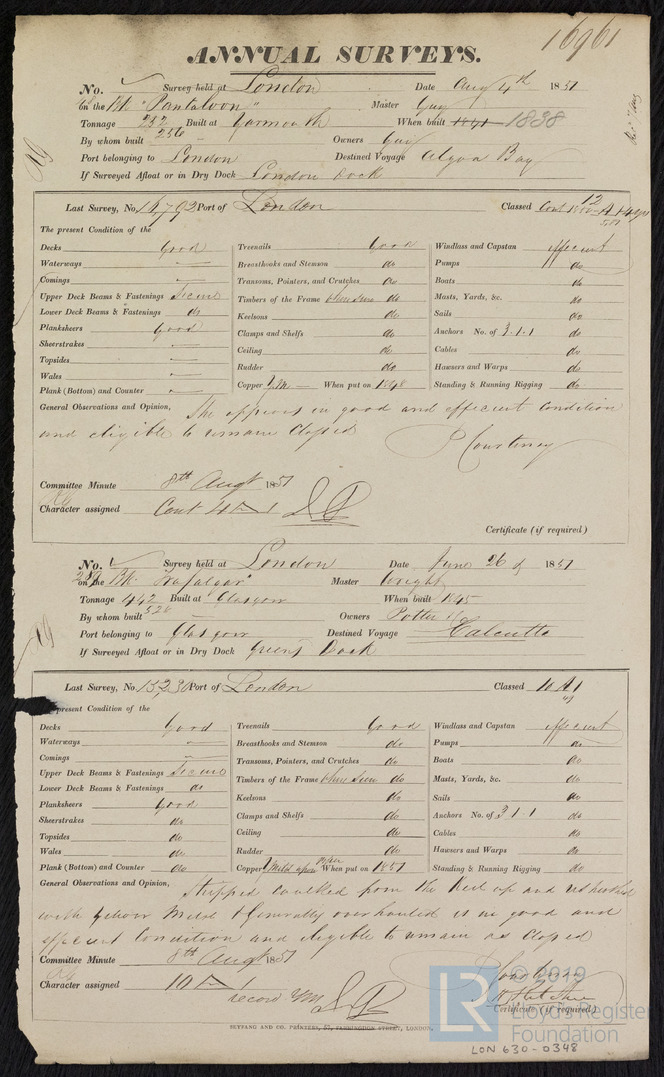 16961
ANNUAL SURVEYS.
No. Survey held at London Date Augt 4th 1851
on the Bk "Pantaloon" Master Guy
Tonnage 232 Built at Yarmouth When built 1841 1838
By whom built 256 Owners Guy
Port belonging to London Destined Voyage Algoa Bay
If Surveyed Afloat or in Dry Dock London Dock
Last Survey, No. 14,792 Port of London Classed Cont
The present Condition of the
Decks Good Treenails Good Windlass and Capstan efficient
Waterways — Breasthooks and Stemson do Pumps do
Comings — Transoms, Pointers, and Crutches do Boats do
Upper Deck Beams & Fastenings Secure Timbers of the Frame when seen do Masts, Yards, &c. do
Lower Deck Beams & Fastenings do Keelsons do Sails do
Planksheers Good Clamps and Shelfs do Anchors No. of 3.1.1 do
Sheerstrakes — Ceiling do Cables do
Topsides — Rudder do Hawsers and Warps do
Wales — Copper YM — When put on 1848 Standing & Running Rigging do
Plank (Bottom) and Counter —
General Observations and Opinion, She appears in good and efficient condition
and eligible to remain Classed
P Courtenay
Committee Minute 8th Augt 1851
Character assigned Cont 4 A 1
Certificate (if required)
No. Survey held at London Date June 26 1851
on the Bk "Trafalgar" Master Wright
Tonnage 442 Built at Glasgow When built 1845
By whom built 328 Owners Potter
Port belonging to Glasgow Destined Voyage Calcutta
If Surveyed Afloat or in Dry Dock Greens Dock
Last Survey, No. 15,230 Port of London Classed 10 A1
present Condition of the
Decks Good Treenails Good Windlass and Capstan efficient
Waterways — Breasthooks and Stemson do Pumps do
Comings — Transoms, Pointers, and Crutches do Boats do
Upper Deck Beams & Fastenings Secure Timbers of the Frame when seen do Masts, Yards, &c. do
Lower Deck Beams & Fastenings do Keelsons do Sails do
Planksheers Good Clamps and Shelfs do Anchors No. of 3.1.1 do
Sheerstrakes do Ceiling do Cables do
Topsides do Rudder do Hawsers and Warps do
Wales do Copper Y Metal upon Copper When put on 1851 Standing & Running Rigging do
Plank (Bottom) and Counter do
General Observations and Opinion, Stripped caulked from the Keel up and resheathed
with yellow Metal & Generally overhauled is in good and
efficient Condition and eligible to remain as Classed
Committee Minute 8th Augt 1851
Character assigned 10 A 1
record YM
Certificate (if required)
SEYFANG AND CO. PRINTERS, 57, FARRINGDON STREET, LONDON.
LR
© 2019
Lloyd's Register
Foundation
LON 630-0348